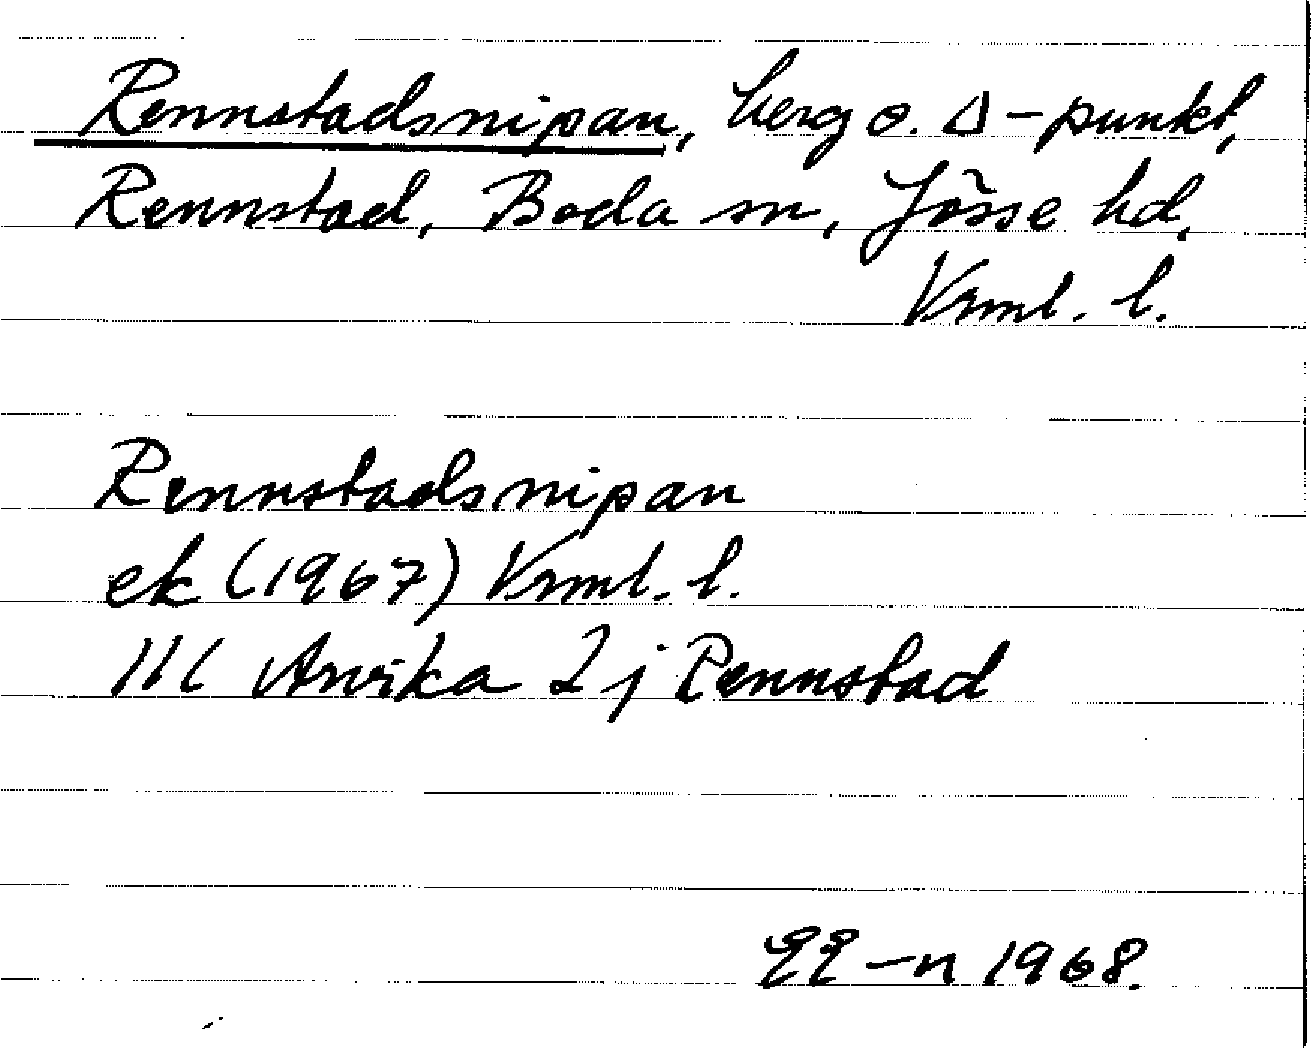 Rennstadsnipan, berg o. Δ-punkt,
Rennstad, Boda sn, Jösse hd,
Vrml. l.
Rennstadsnipan
ek (1967) Vrml. l.
11C Arvika 2j Rennstad
EE-n 1968.